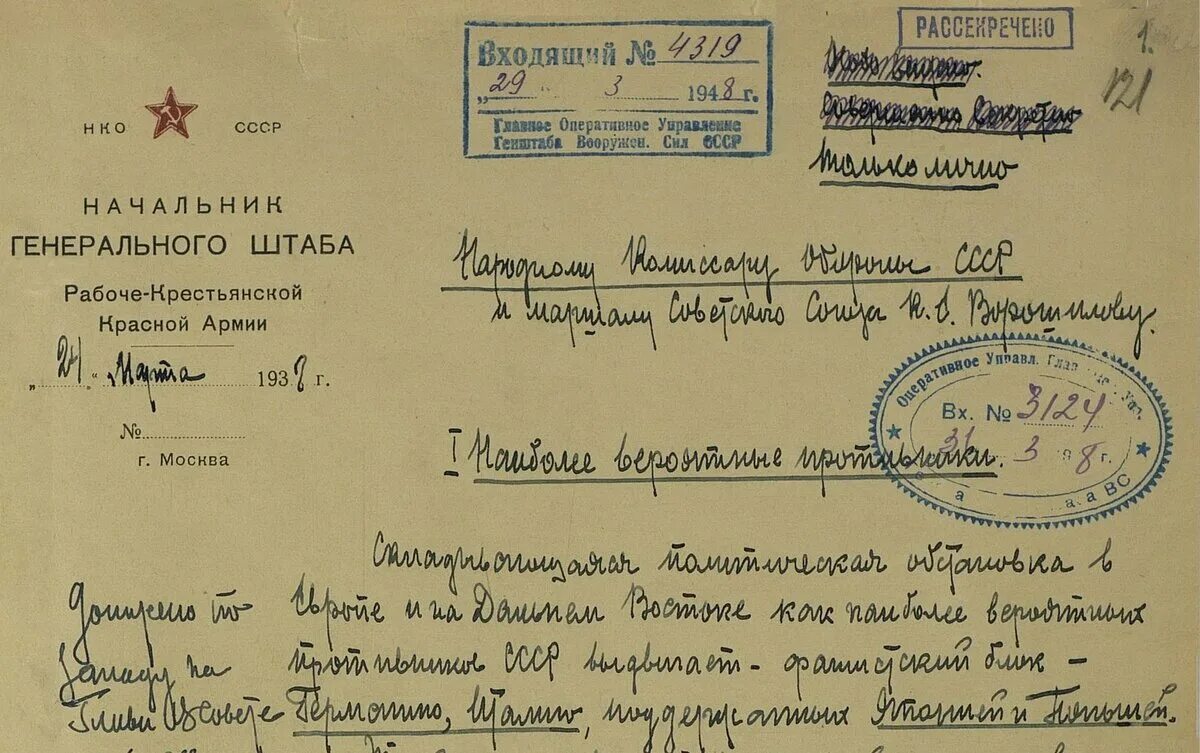 РАССЕКРЕЧЕНО
1.
121
Входящий № 4319
„29" 3 1948 г.
Главное Оперативное Управление
Генштаба Вооружен. Сил СССР
Только лично
НКО СССР
НАЧАЛЬНИК
ГЕНЕРАЛЬНОГО ШТАБА
Рабоче-Крестьянской
Красной Армии
„24" Марта 1938 г.
№
г. Москва
Народному Комиссару Обороны СССР
и маршалу Советского Союза К. Е. Ворошилову.
Оперативное Управл. Глав
Вх. № 3124
31 3 8 г.
I Наиболее вероятные противники.
Складывающаяся политическая обстановка в
Европе и на Дальнем Востоке как наиболее вероятных
противников СССР выдвигает - фашистский блок -
Германию, Италию, поддержанных Японией и Польшей.
Доложено по
Западу на
Главв. Совете